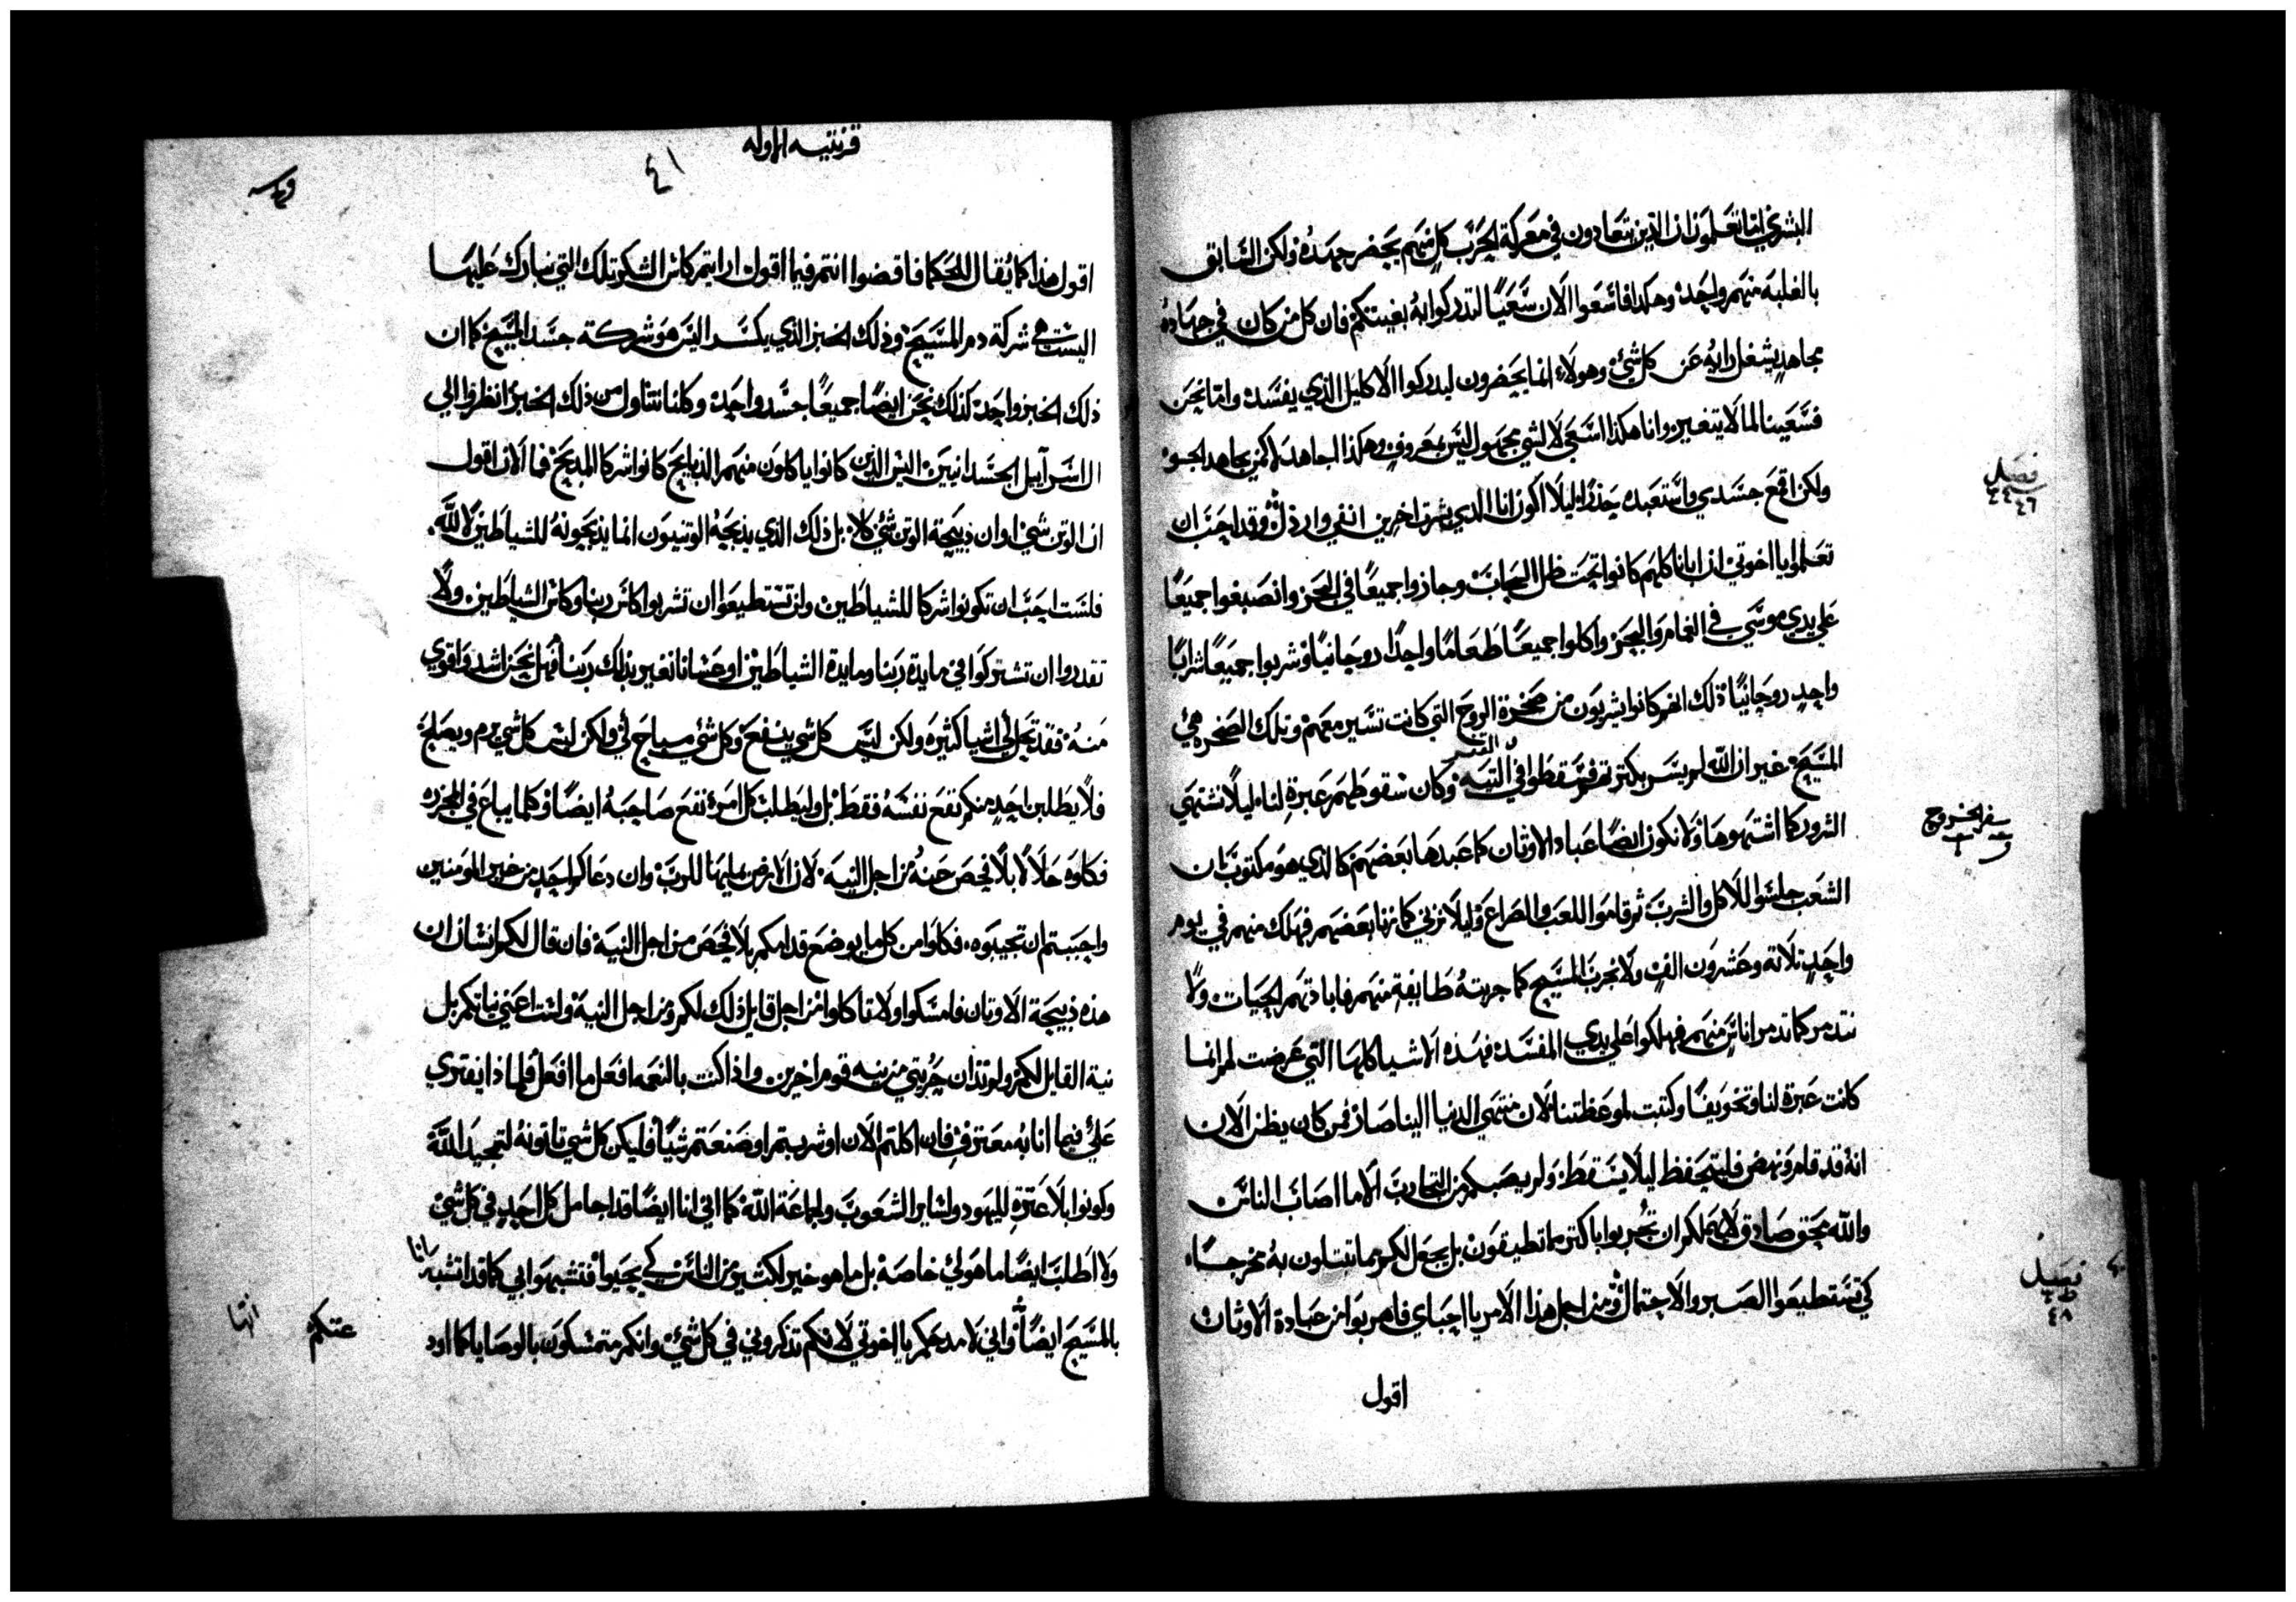 البشري اما تعلمون ان الذين يتعادون في معركة الحرب كل منهم يحضر جهده ولكن السابق
بالغلبه منهم واحد وهكدا فاسعوا الان سعيًا لتدركوا به بغيتكم فان كل من كان في جهاده
مجاهدٍ يشغل رايه عن كل شئ وهولاء انما يحضرون ليدركوا الاكليل الذي يفسد واما نحن
فسعينا لما لا يتغير وانا هكذا اسعي لا لشي مجهول ليس بمعروف وهكذا اجاهد لا كمن يجاهد الجو
ولكن اقمع جسدي واستعبده حذرًا ليلا اكون انا الذي بشرت اخرين انفي وارذل وقد احب ان
فصل
٤٦
تعلموا يا اخوتي ان ابانا كلهم كانوا تحت ظل السحاب وجازوا جميعًا في البحر وانصبغوا جميعًا
علي يدي موسي في الغمام والبحر واكلوا جميعًا طعامًا واحدًا روحانيًا وشربوا جميعًا شرابًا
واحدٍ روحانيًا ذلك انهم كانوا يشربون من صخرة الروح التي كانت تسير معهم وتلك الصخره هي
المسيح غير ان الله لم يسر بكترتهم فسقطوا في التيه وكان سقوطهم عبرة لنا ليلا نشتهي
الشرور كما اشتهوها ولا نكون ايضًا عباد الاوثان كما عبدها بعضهم كالذي هو مكتوب ان
سفر الخروج
الشعب جلسوا للاكل والشرب ثم قاموا للعب والصراع وليلا نزني كما زنا بعضهم فهلك منهم في يوم
واحدٍ تلاته وعشرون الفٍ ولا نجرب المسيح كما جربته طايفة منهم فابادتهم الحيات ولا
نتدمر كما تدمر اناس منهم فهلكوا علي يدي المفسد فهذه الاشيا كلها التي عرضت لهم انما
كانت عبرة لنا وتخويفًا وكتبت لموعظتنا لان منتهي الدنيا الينا صار فمن كان يظن الان
انه قد قام ونهض فليتحفظ ليلا يسقط ولم يصبكم من التجارب الا ما اصاب الناس
والله محق صادق لا يهملكم ان تجربوا باكتر ما تطيقون بل يجعل لكم مما تبتلون به مخرجًا
كي تستطيعوا الصبر والاحتمال ومن اجل هذا الامر يا احباي فاهربوا من عبادة الاوثان
فصل
٤٨
اقول
قرنتيه الاوله
٤١
اقول هذا كما يقال للحكما فاقضوا انتم فيما اقول ارايتم كاس الشكر تلك التي نبارك عليها
اليست هي شركة دم المسيح وذلك الخبز الذي يكسر اليس هو شركة جسد المسيح كما ان
ذلك الخبز واحد كذلك نحن ايضًا جميعًا جسد واحد وكلنا نتناول من ذلك الخبز انظروا الي
ال اسرآييل الجسدانيين اليس الذين كانوا ياكلون منهم الذبايح كانوا شركا المدبح فما الان اقول
ان الوتن شي او ان دبيحة الوتن شي كلا بل ذلك الذي يذبحه الوتنيون انما يذبحونه للشياطين لا لله
فلست احب ان تكونوا شركا للشياطين ولن تستطيعوا ان تشربوا كاس ربنا وكاس الشياطين ولا
تقدروا ان تشتركوا في مايدة ربنا ومايدة الشياطين او عسانا نغير بذلك ربنا فهل نحن اشد واقوي
منه فقد تحل لي اشيا كثيره ولكن ليس كل شي ينفع وكل شي مباح لي ولكن ليس كل شي يرم ويصلح
فلا يطلبن احد منكم نفع نفسه فقط بل وليطلب كل امرء نفع صاحبه ايضًا وكلما يباع في المجزره
فكلوه حلالا بلا فحص عنه من اجل النيه لان الارض بمليها للرب وان دعاكم احد من غير المومنين
واحببتم ان تجيبوه فكلوا من كل ما يوضع قدامكم بلا فحص من اجل النية فان قال لكم انسان ان
هذه ذبيحة الاوتان فامسكوا ولا تاكلوا من اجل قايل ذلك لكم ومن اجل النية ولست اعني نياتكم بل
نية القايل لكم ولم تدان حريتي من نيه قوم اخرين واذا كنت بالنعمه افعل ما افعل فلماذا يفتري
علي فيما انا به معترف فان اكلتم الان او شربتم او صنعتم شيًا فليكن كل شي تاتونه لتمجيد الله
وكونوا بلا عترة لليهود ولساير الشعوب ولجماعة الله كما اني انا ايضًا قد اجامل كل احد في كل شي
ولا اطلب ايضًا ما هو لي خاصة بل ما هو خير لكتير من الناس كي يحيوا فتشبهوا بي كما قد اتشبه انا
بالمسيح ايضًا واني لامدحكم يا اخوتي لانكم تذكروني في كل شئ وانكم متمسكون بالوصايا كما اود
عتكم